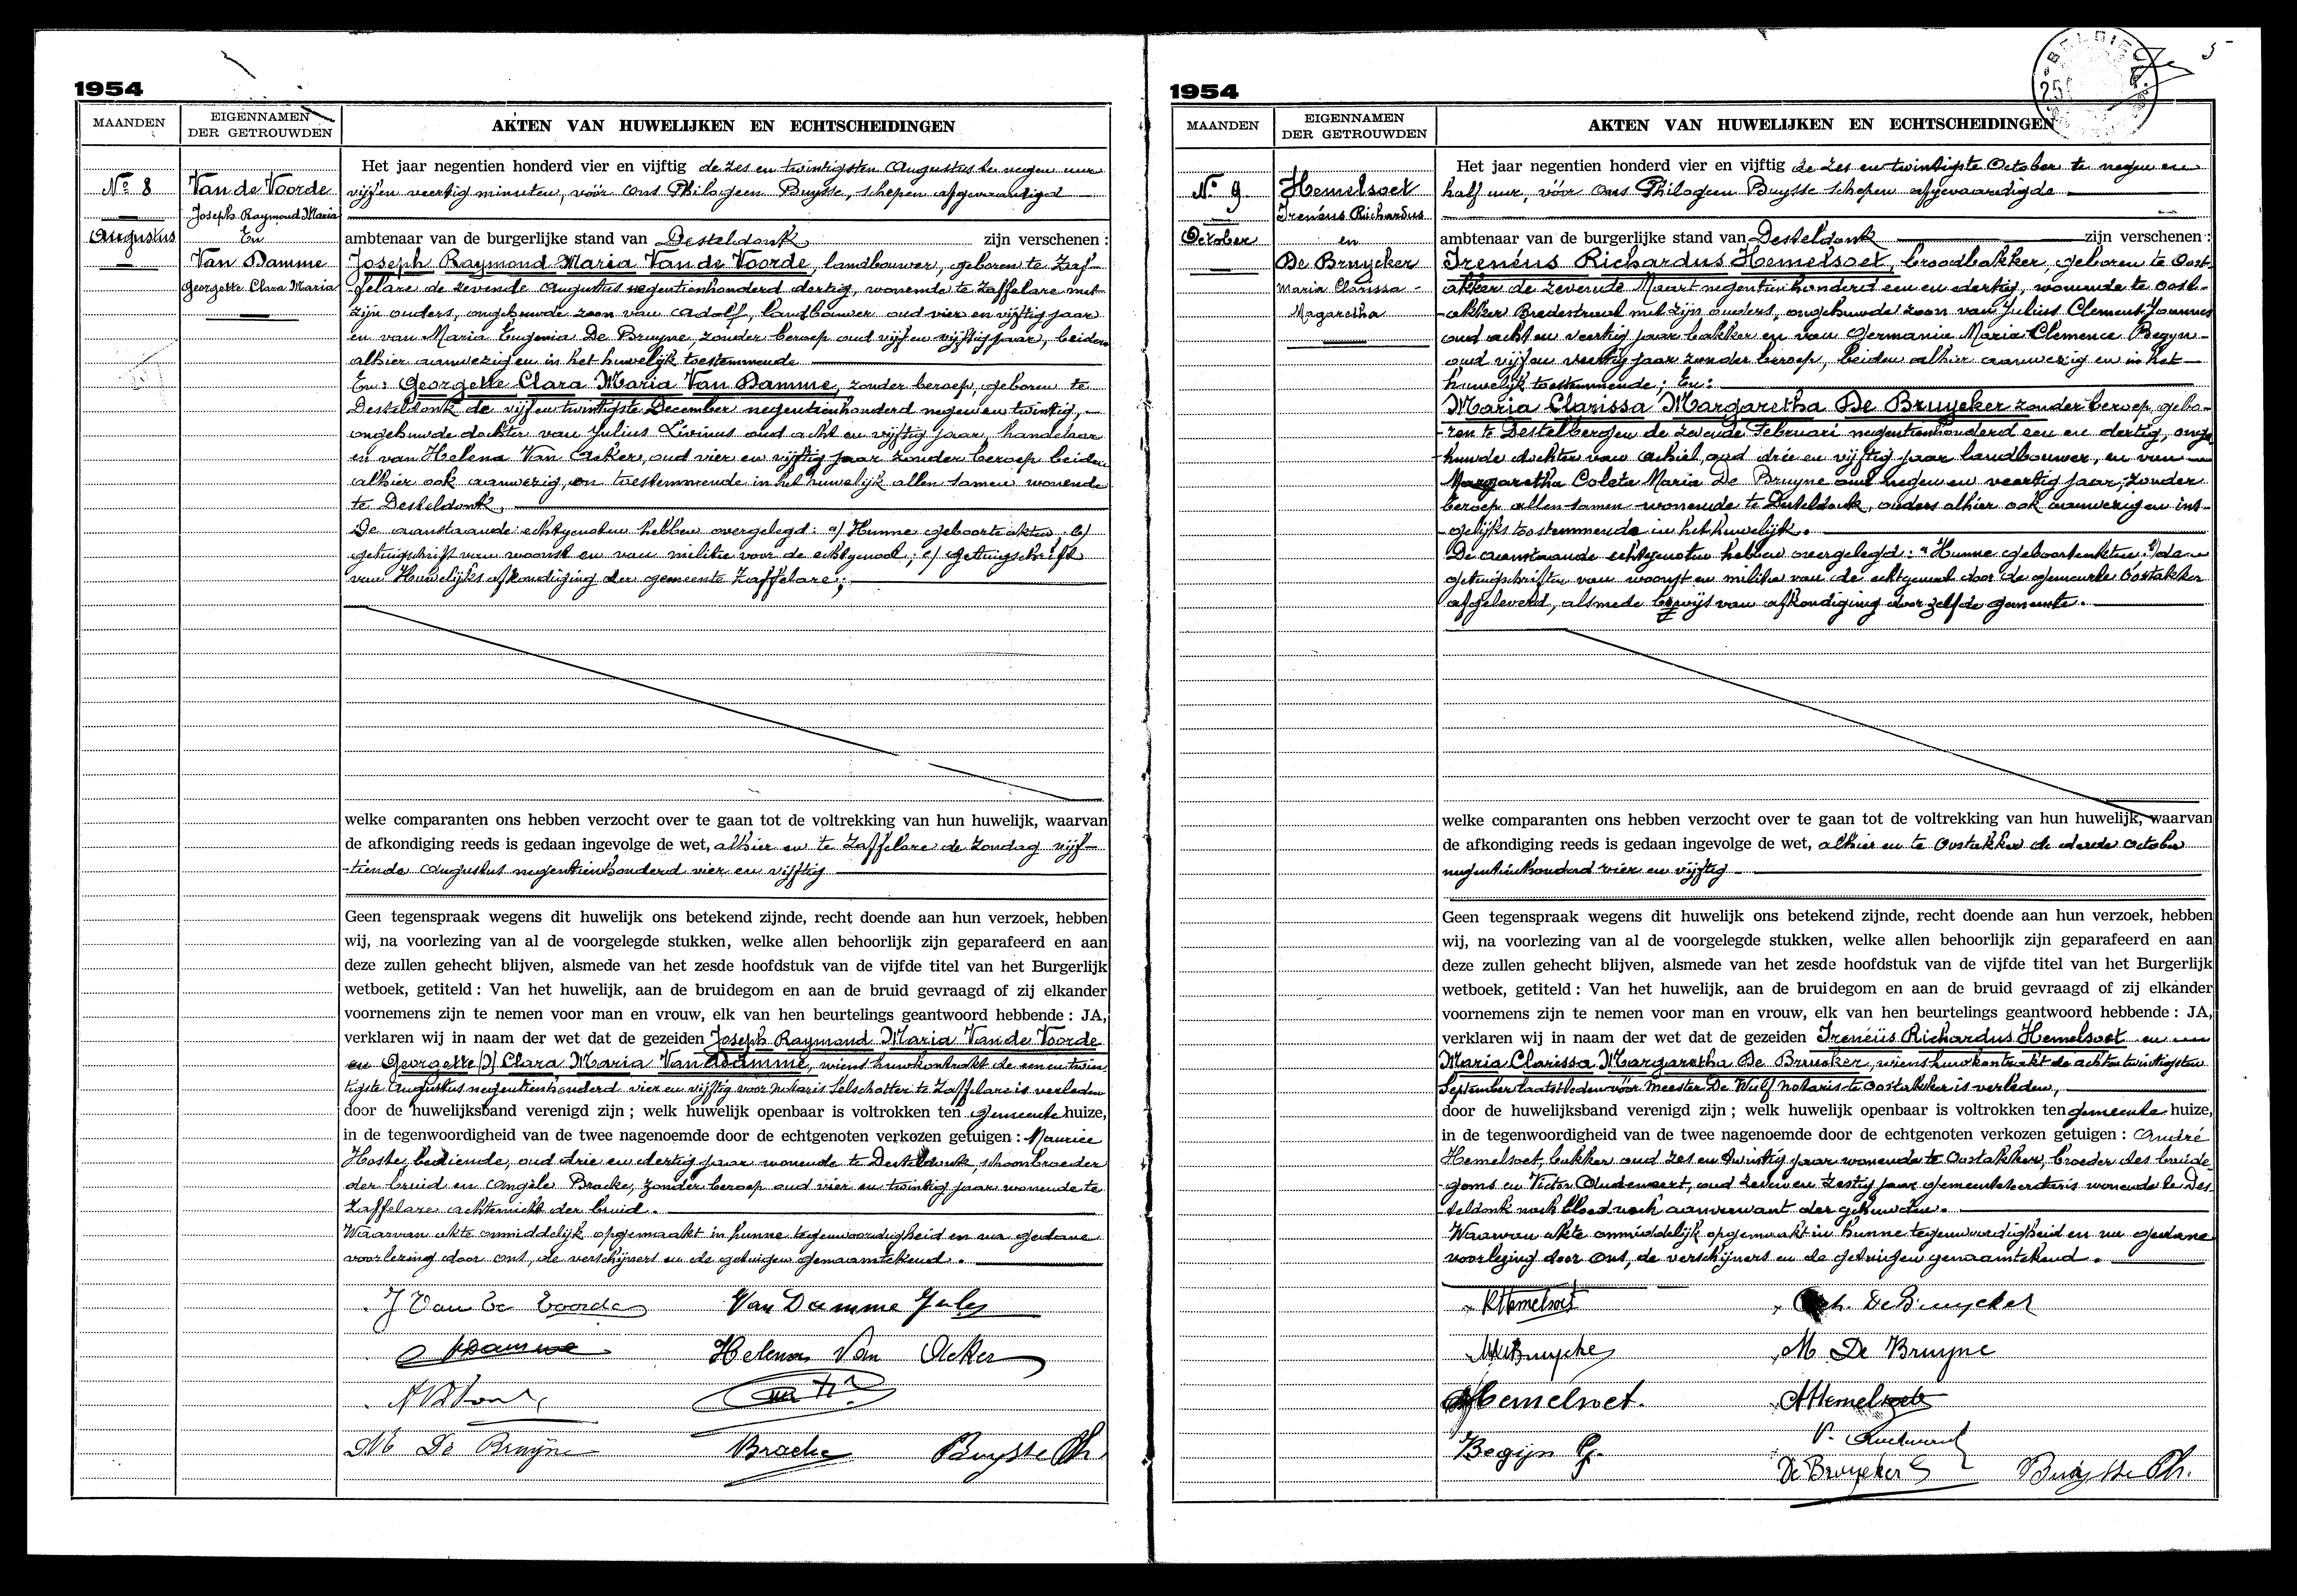 1954
MAANDEN
EIGENNAMEN
DER GETROUWDEN
AKTEN VAN HUWELIJKEN EN ECHTSCHEIDINGEN
No 8
Augustus
Van de Voorde
Joseph Raymond Maria
En
Van Damme
Georgette Clara Maria
Het jaar negentien honderd vier en vijftig de zes en twintigsten Augustus te negen uur
vijf en veertig minuten, vóór ons Philogeen Buysse, schepen afgevaardigd
ambtenaar van de burgerlijke stand van Desteldonk zijn verschenen :
Joseph Raymond Maria Van de Voorde, landbouwer, geboren te Zaf-
felare de zevende Augustus negentienhonderd dertig, wonende te Zaffelare met
zijn ouders, ongehuwde zoon van Adolf, landbouwer oud vier en vijftig jaar
en van Maria Eugenia De Bruyne, zonder beroep oud vijf en vijftig jaar, beiden
alhier aanwezig en in het huwelijk toestemmende
En: Georgette Clara Maria Van Damme, zonder beroep, geboren te
Desteldonk de vijf en twintigste December negentienhonderd negen en twintig,
ongehuwde dochter van Julius Livinus oud acht en vijftig jaar, handelaar
en van Helena Van Acker, oud vier en vijftig jaar zonder beroep beiden
alhier ook aanwezig, en toestemmende in het huwelijk allen samen wonende
te Desteldonk,
De aanstaande echtgenoten hebben overgelegd: a/ Hunne geboorteakten, b/
getuigschrift van woonst en van militie voor de echtgenoot; c/ getuigschrift
van Huwelijksafkondiging der gemeente Zaffelare;
welke comparanten ons hebben verzocht over te gaan tot de voltrekking van hun huwelijk, waarvan
de afkondiging reeds is gedaan ingevolge de wet, alhier en te Zaffelare de Zondag vijf-
tiende Augustus negentienhonderd vier en vijftig
Geen tegenspraak wegens dit huwelijk ons betekend zijnde, recht doende aan hun verzoek, hebben
wij, na voorlezing van al de voorgelegde stukken, welke allen behoorlijk zijn geparafeerd en aan
deze zullen gehecht blijven, alsmede van het zesde hoofdstuk van de vijfde titel van het Burgerlijk
wetboek, getiteld : Van het huwelijk, aan de bruidegom en aan de bruid gevraagd of zij elkander
voornemens zijn te nemen voor man en vrouw, elk van hen beurtelings geantwoord hebbende : JA,
verklaren wij in naam der wet dat de gezeiden Joseph Raymond Maria Van de Voorde
en Georgette Clara Maria Van Damme, wiens huwkontrakt de een en twin
tigste Augustus negentienhonderd vier en vijftig voor Notaris Selschotter te Zaffelare is verleden
door de huwelijksband verenigd zijn ; welk huwelijk openbaar is voltrokken ten gemeente huize,
in de tegenwoordigheid van de twee nagenoemde door de echtgenoten verkozen getuigen : Maurice
Hoste, bediende, oud drie en dertig jaar wonende te Desteldonk, schoonbroeder
der bruid en Angèle Bracke, zonder beroep oud vier en twintig jaar wonende te
Zaffelare achternicht der bruid.
Waarvan akte onmiddelijk opgemaakt in hunne tegenwoordigheid en na gedane
voorlezing door ons, de verschijners en de getuigen genaamtekend.
J Van De Voorde Van Damme Jules
Helena Van Acker
M De Bruyne Bracke Buysse Ph.
1954
5
BELGIE
MAANDEN
EIGENNAMEN
DER GETROUWDEN
AKTEN VAN HUWELIJKEN EN ECHTSCHEIDINGEN
No 9
October
Hemelsoet
Irenéus Richardus
en
De Bruycker
Maria Clarissa -
Magaretha
Het jaar negentien honderd vier en vijftig de zes en twintigste October te negen en
half uur, vóór ons Philogeen Buysse schepen afgevaardigde
ambtenaar van de burgerlijke stand van Desteldonk zijn verschenen :
Irenéus Richardus Hemelsoet, broodbakker, geboren te Oost-
akker de zevende Maart negentienhonderd een en dertig, wonende te Oost-
akker Bredestraat met zijn ouders, ongehuwde zoon van Julius Clement Joannes
oud acht en veertig jaar bakker en van Germanie Maria Clemence Begyn
oud vijf en veertig jaar zonder beroep, beiden alhier aanwezig en in het
huwelijk toestemmende; En:
Maria Clarissa Margaretha De Bruycker zonder beroep, gebo-
ren te Destelbergen de zevende Februari negentienhonderd een en dertig, onge
huwde dochter van Achiel, oud drie en vijftig jaar landbouwer, en van
Margaretha Coleta Maria De Bruyne oud negen en veertig jaar, zonder
beroep allen samen wonende te Desteldonk, ouders alhier ook aanwezig en ins-
gelijks toestemmende in het huwelijk.
De aanstaande echtgenoten hebben overgelegd: a Hunne geboorteakten b) de
getuigschriften van woonst en militie van de echtgenoot door de gemeente Oostakker
afgeleverd, alsmede bewijs van afkondiging door zelfde gemeente.
welke comparanten ons hebben verzocht over te gaan tot de voltrekking van hun huwelijk, waarvan
de afkondiging reeds is gedaan ingevolge de wet, alhier en te Oostakker de derde October
negentienhonderd vier en vijftig
Geen tegenspraak wegens dit huwelijk ons betekend zijnde, recht doende aan hun verzoek, hebben
wij, na voorlezing van al de voorgelegde stukken, welke allen behoorlijk zijn geparafeerd en aan
deze zullen gehecht blijven, alsmede van het zesde hoofdstuk van de vijfde titel van het Burgerlijk
wetboek, getiteld : Van het huwelijk, aan de bruidegom en aan de bruid gevraagd of zij elkander
voornemens zijn te nemen voor man en vrouw, elk van hen beurtelings geantwoord hebbende : JA,
verklaren wij in naam der wet dat de gezeiden Irenéüs Richardus Hemelsoet en
Maria Clarissa Margaretha De Bruycker, wiens huwkontrakt de acht en twintigsten
September laatstleden vóór Meester De Wulf Notaris te Oostakker is verleden,
door de huwelijksband verenigd zijn ; welk huwelijk openbaar is voltrokken ten gemeente huize,
in de tegenwoordigheid van de twee nagenoemde door de echtgenoten verkozen getuigen : André
Hemelsoet, bakker oud zes en twintig jaar wonende te Oostakker, broeder des bruide
goms en Victor Oudenaert, oud zeven en zestig jaar gemeentesecretaris wonende te Des
teldonk noch bloed noch aanverwant der gehuwden.
Waarvan akte onmiddelijk opgemaakt in hunne tegenwoordigheid en na gedane
voorlezing door ons, de verschijners en de getuigen genaamtekend.
R Hemelsoet Ach. De Bruycker
M De Bruyne
Hemelsoet. A Hemelsoet
Begijn G.
De Bruycker Buysse Ph.